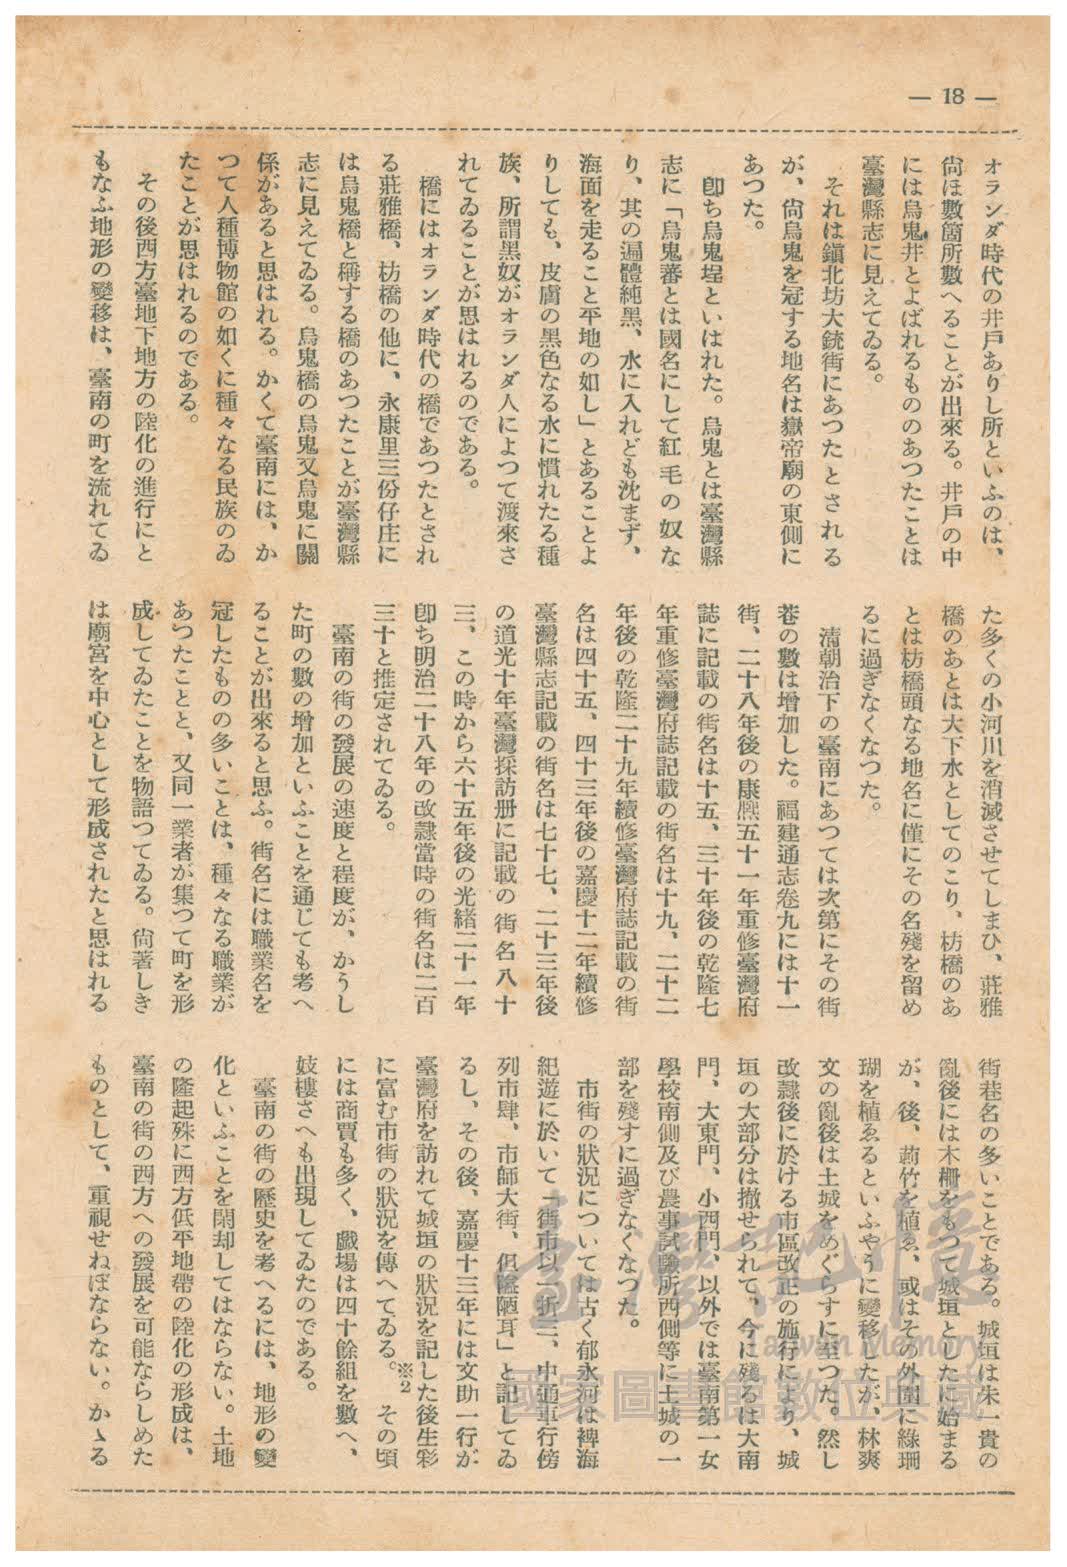 — 18 —
オランダ時代の井戸ありし所といふのは、
尙ほ數箇所數へることが出來る。井戸の中
には烏鬼井とよばれるもののあつたことは
臺灣縣志に見えてゐる。
それは鎭北坊大銃街にあつたとされる
が、尙烏鬼を冠する地名は嶽帝廟の東側に
あつた。
卽ち烏鬼埕といはれた。烏鬼とは臺灣縣
志に「烏鬼蕃とは國名にして紅毛の奴な
り、其の遍體純黑、水に入れども沈まず、
海面を走ること平地の如し」とあることよ
りしても、皮膚の黑色なる水に慣れたる種
族、所謂黑奴がオランダ人によつて渡來さ
れてゐることが思はれるのである。
橋にはオランダ時代の橋であつたとされ
る莊雅橋、枋橋の他に、永康里三份仔庄に
は烏鬼橋と稱する橋のあつたことが臺灣縣
志に見えてゐる。烏鬼橋の烏鬼又烏鬼に關
係があると思はれる。かくて臺南には、か
つて人種博物館の如くに種々なる民族のゐ
たことが思はれるのである。
その後西方臺地下地方の陸化の進行にと
もなふ地形の變移は、臺南の町を流れてゐ
た多くの小河川を消滅させてしまひ、莊雅
橋のあとは大下水としてのこり、枋橋のあ
とは枋橋頭なる地名に僅にその名殘を留め
るに過ぎなくなつた。
淸朝治下の臺南にあつては次第にその街
巷の數は增加した。福建通志卷九には十一
街、二十八年後の康熙五十一年重修臺灣府
誌に記載の街名は十五、三十年後の乾隆七
年重修臺灣府誌記載の街名は十九、二十二
年後の乾隆二十九年續修臺灣府誌記載の街
名は四十五、四十三年後の嘉慶十二年續修
臺灣縣志記載の街名は七十七、二十三年後
の道光十年臺灣採訪册に記載の街名八十
三、この時から六十五年後の光緖二十一年
卽ち明治二十八年の改隸當時の街名は二百
三十と推定されてゐる。
臺南の街の發展の速度と程度が、かうし
た町の數の增加といふことを通じても考へ
ることが出來ると思ふ。街名には職業名を
冠したものの多いことは、種々なる職業が
あつたことと、又同一業者が集つて町を形
成してゐたことを物語つてゐる。尙著しき
は廟宮を中心として形成されたと思はれる
街巷名の多いことである。城垣は朱一貴の
亂後には木柵をもつて城垣としたに始まる
が、後、莿竹を植ゑ、或はその外圍に綠珊
瑚を植ゑるといふやうに變移したが、林爽
文の亂後は土城をめぐらすに至つた。然し
改隸後に於ける市區改正の施行により、城
垣の大部分は撤せられて、今に殘るは大南
門、大東門、小西門、以外では臺南第一女
學校南側及び農事試驗所西側等に土城の一
部を殘すに過ぎなくなつた。
市街の狀況については古く郁永河は裨海
紀遊に於いて「街市以一折三、中通車行傍
列市肆、市師大街、但隘陋耳」と記してゐ
るし、その後、嘉慶十三年には文助一行が
臺灣府を訪れて城垣の狀況を記した後生彩
に富む市街の狀況を傳へてゐる。※2 その頃
には商賈も多く、戲場は四十餘組を數へ、
妓樓さへも出現してゐたのである。
臺南の街の歷史を考へるには、地形の變
化といふことを閑却してはならない。土地
の隆起殊に西方低平地帶の陸化の形成は、
臺南の街の西方への發展を可能ならしめた
ものとして、重視せねばならない。かゝる
臺灣記憶
Taiwan Memory
國家圖書館數位典藏